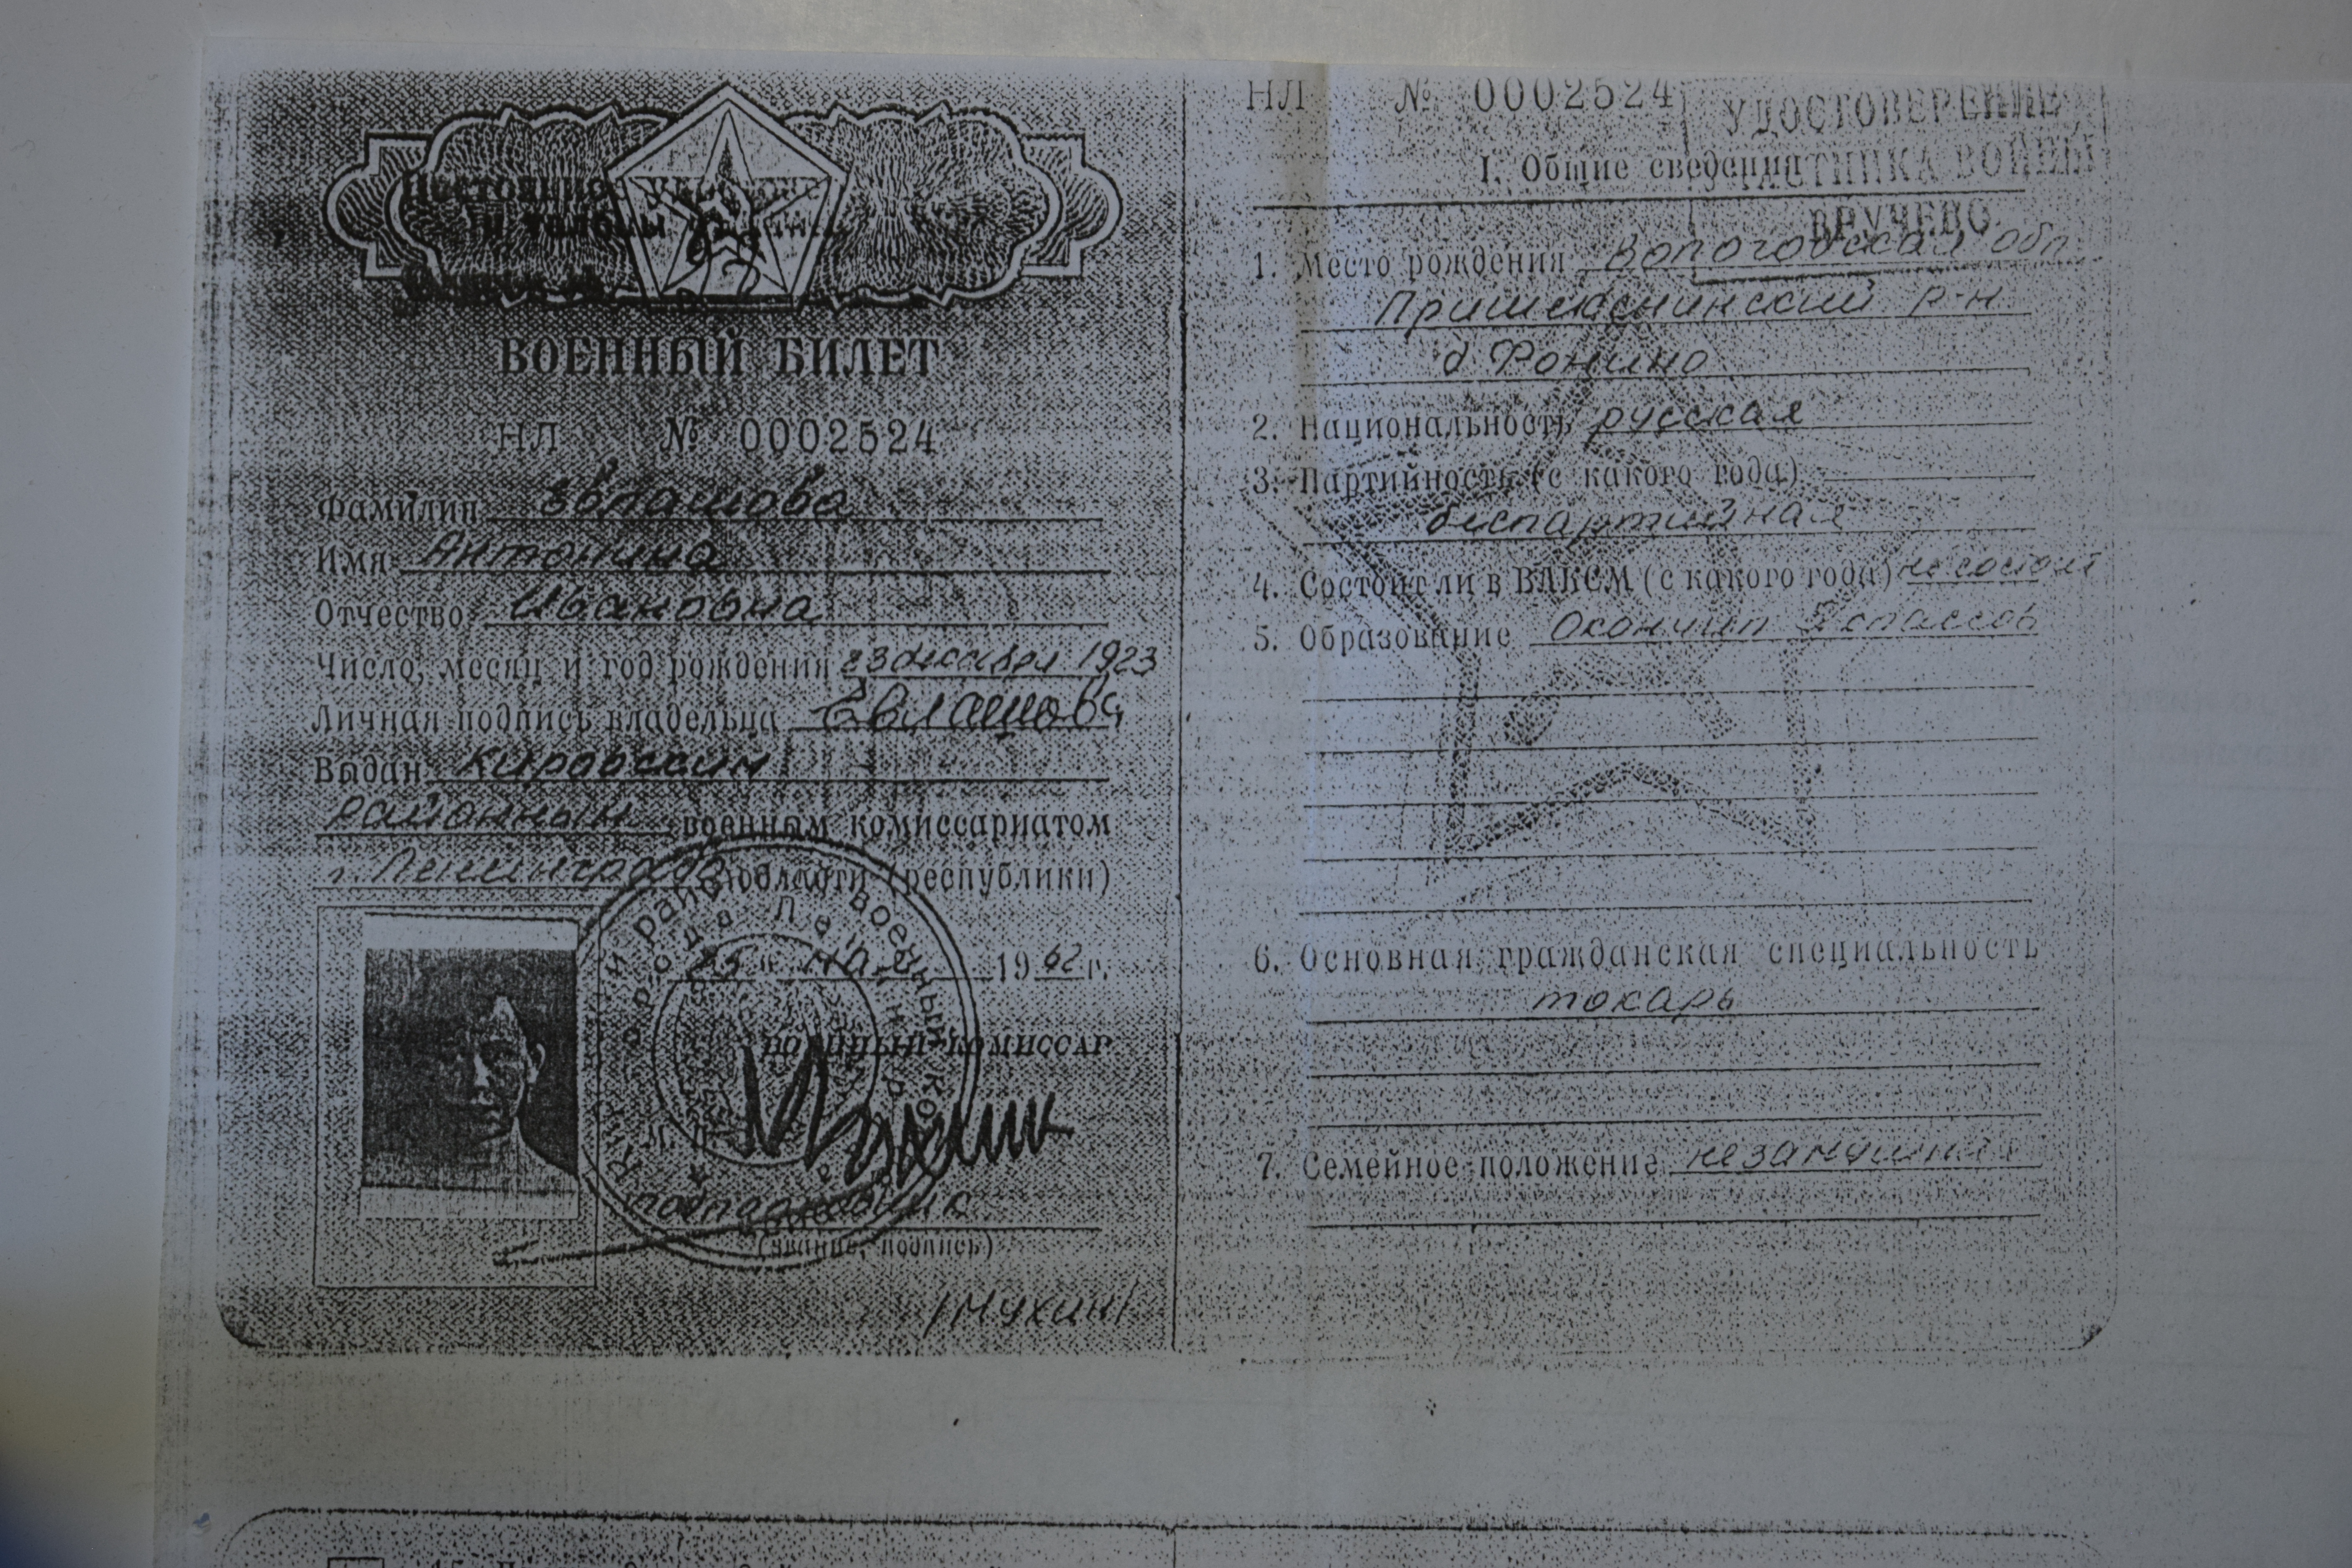 ВОЕННЫЙ БИЛЕТ
НЛ № 0002524
Фамилия Евлашова
Имя Антонина
Отчество Ивановна
Число, месяц и год рождения 23 декабря 1923
Личная подпись владельца Евлашова
Выдан Кировским
районным военным комиссариатом
г. Ленинграда области (республики)
25 " мая 1962 г.
ВОЕННЫЙ КОМИССАР
подполковник
(звание, подпись)
/Мухин/
НЛ № 0002524
УДОСТОВЕРЕНИЕ
УЧАСТНИКА ВОЙНЫ
ВРУЧЕНО
I. Общие сведения
1. Место рождения Вологодская обл.
Пришекснинский р-н
д. Фонино
2. Национальность русская
3. Партийность (с какого года)
беспартийная
4. Состоит ли в ВЛКСМ (с какого года) не состоит
5. Образование Окончил классов
6. Основная гражданская специальность
токарь
7. Семейное положение незамужняя